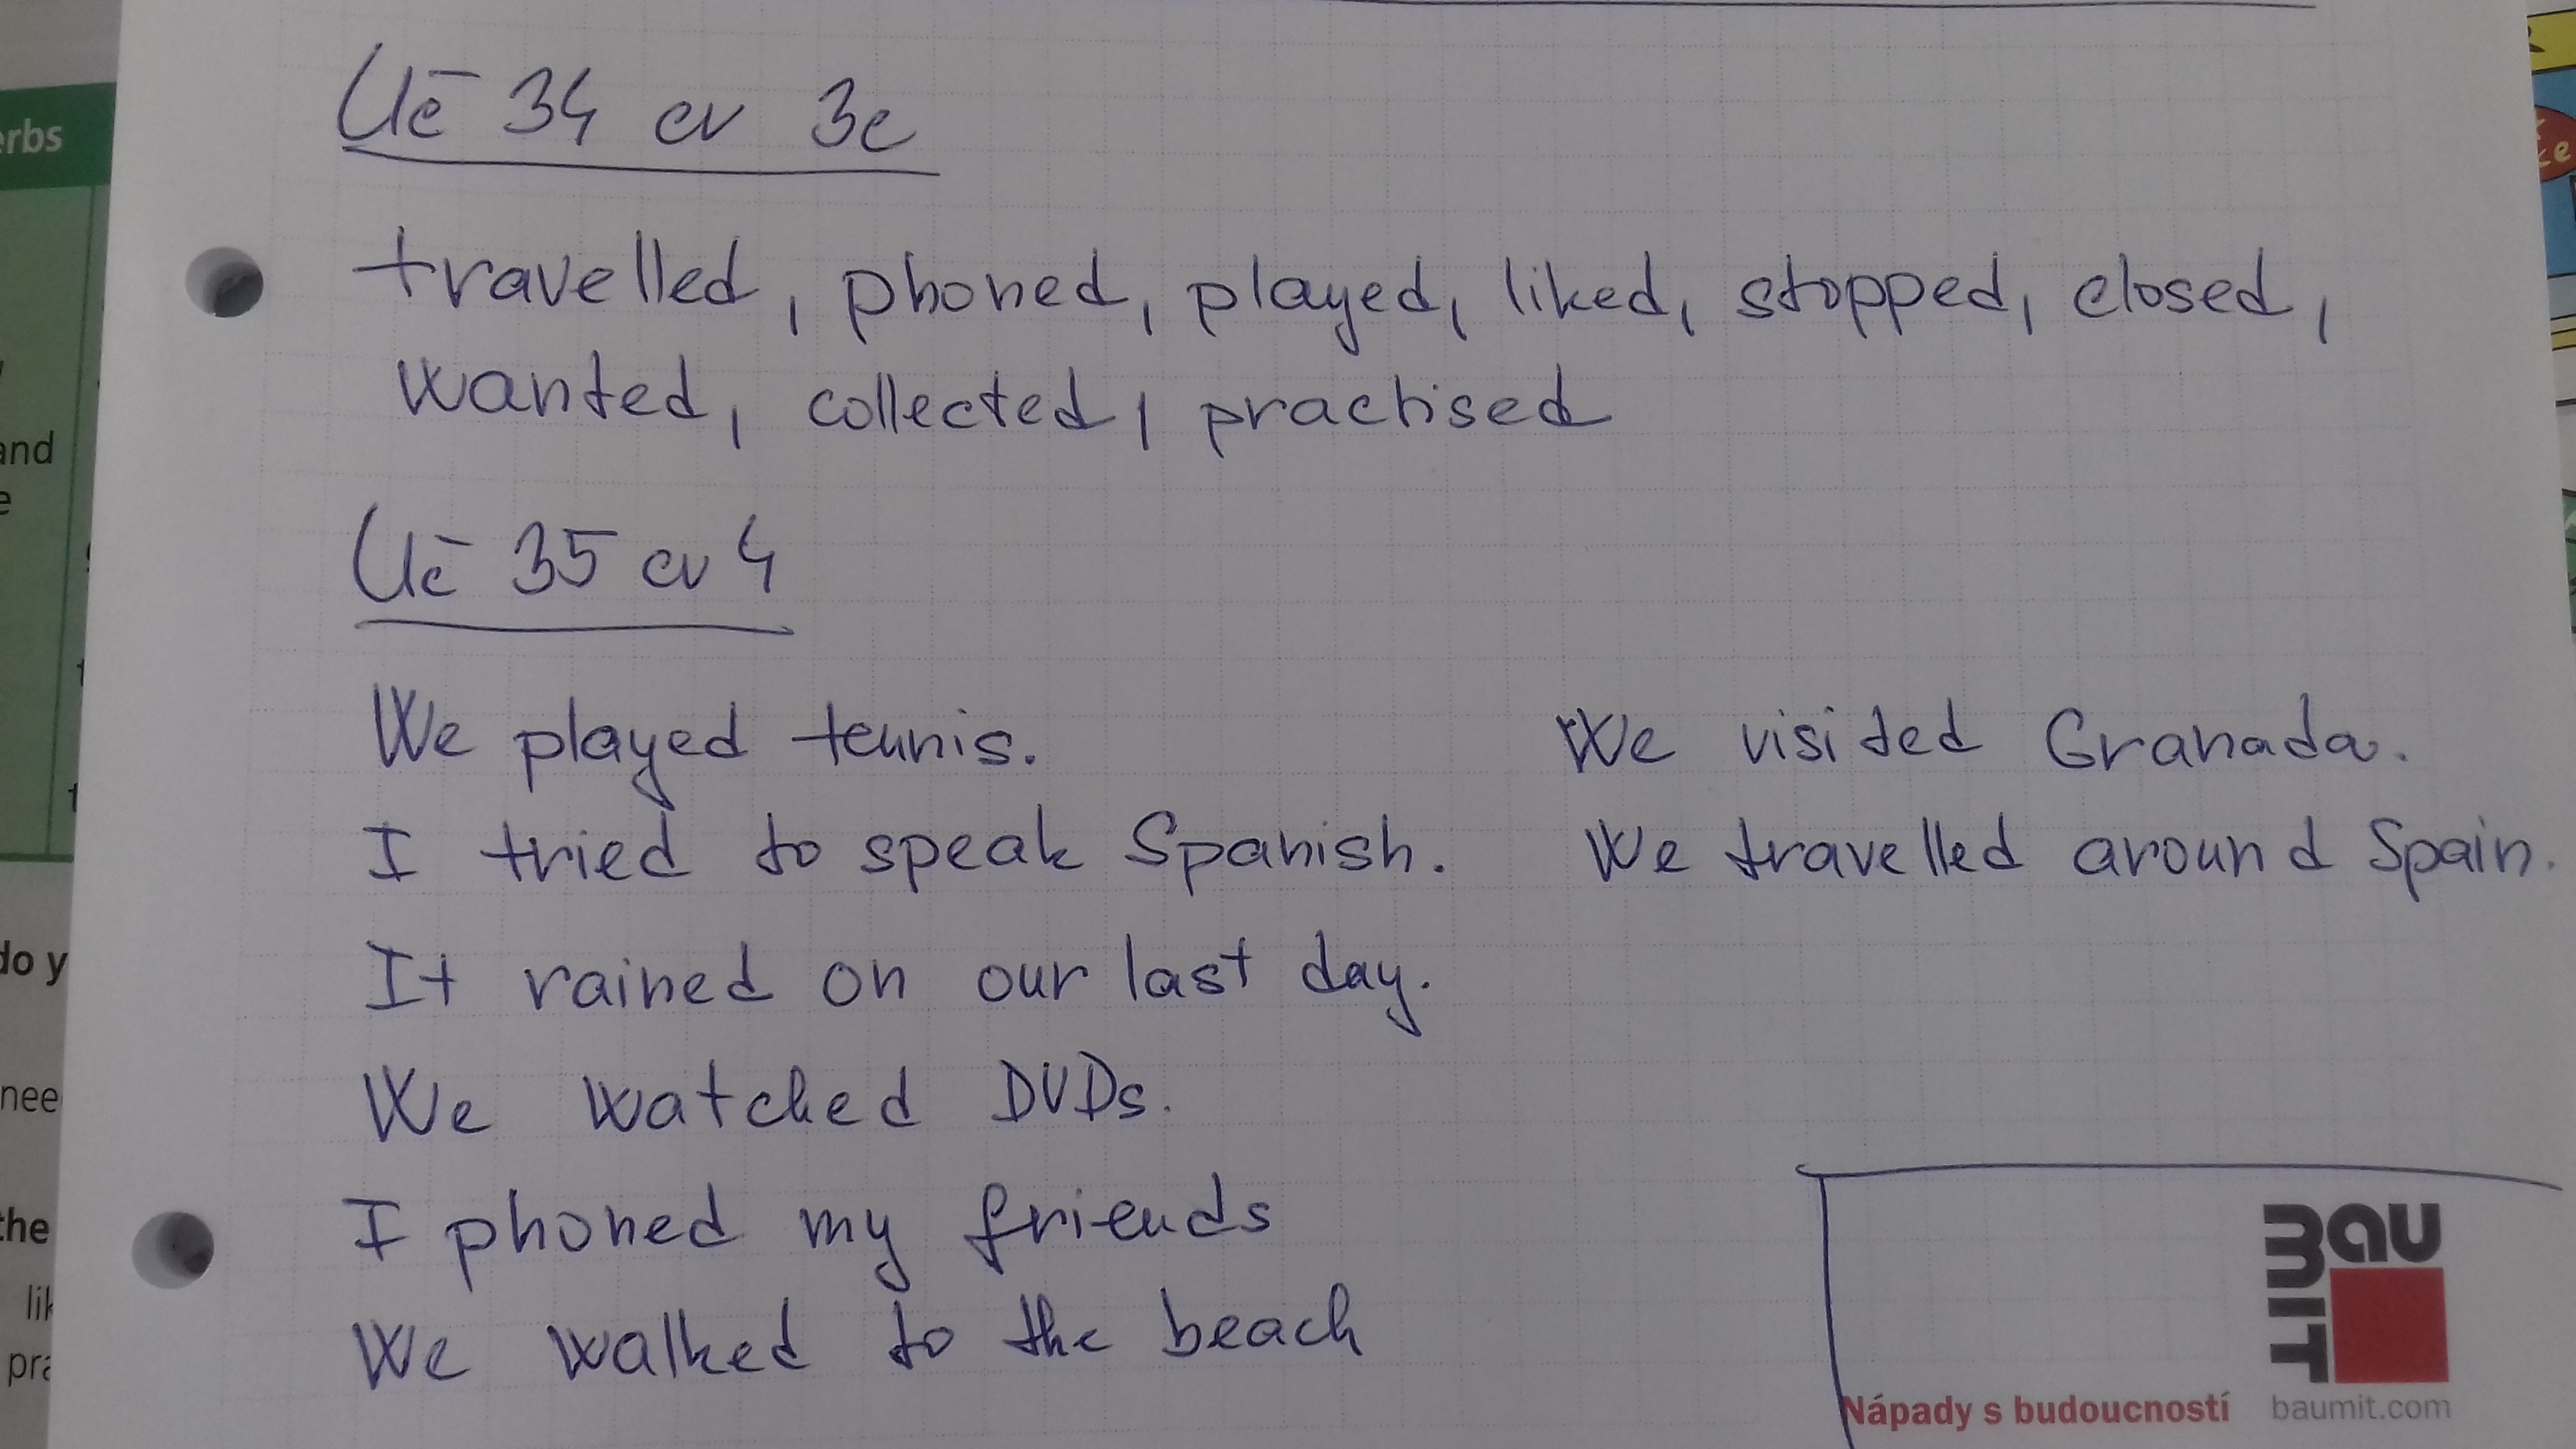 Uč 34 cv 3c
travelled, phoned, played, liked, stopped, closed,
wanted, collected, practised
Uč 35 cv 4
We played tennis.
I tried to speak Spanish.
It rained on our last day.
We watched DVDs.
I phoned my friends
We walked to the beach
We visited Granada.
We travelled around Spain.
baumit
Nápady s budoucností
baumit.com
erbs
and
e
do y
nee
the
lik
pra